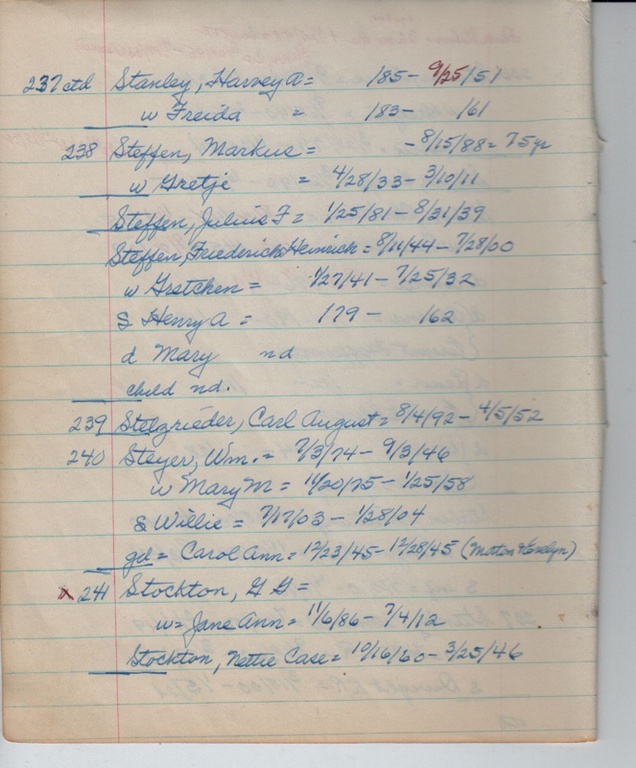 237 ctd Stanley, Harvey A = 185 - 9/25/51
w Freida = 183 - 161
238 Steffen, Markus = - 8/15/88 = 75 yr
w Gretje = 4/28/33 - 3/10/11
Steffen, Julius F = 1/25/81 - 8/31/39
Steffen, Friederich Heinrich = 8/11/44 - 7/28/00
w Gretchen = 1/27/41 - 7/25/32
S Henry A = 179 - 162
d Mary nd
child nd.
239 Stelzrieder, Carl August = 8/4/92 - 4/5/52
240 Steyer, Wm. = 7/3/74 - 9/3/46
w Mary M = 11/20/75 - 1/25/58
S Willie = 7/17/03 - 1/28/04
gd = Carol Ann = 12/23/45 - 12/28/45 (Morton &
x 241 Stockton, G G =
w = Jane Ann = 11/6/86 - 7/4/12
Stockton, Nettie Case = 10/16/60 - 3/25/46